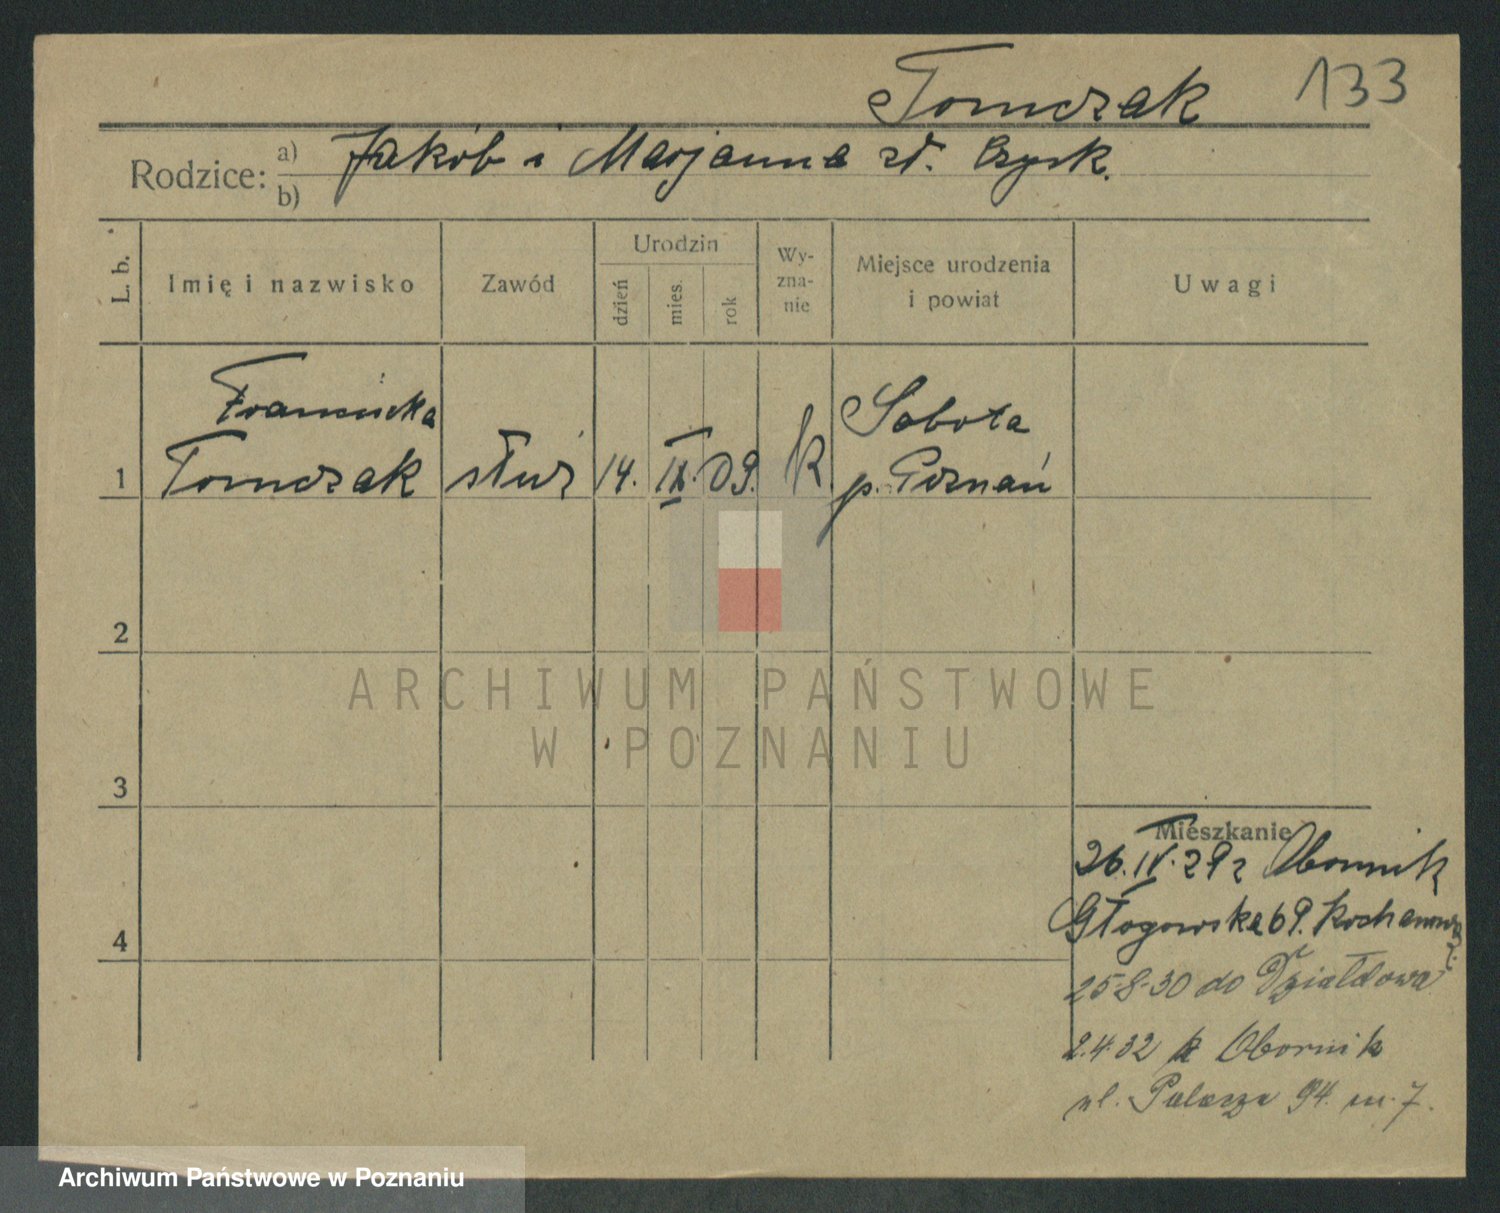 Tomczak 133
Rodzice: a) Jakób i Marjanna zd. Czysk.
b)
L. b. Imię i nazwisko Zawód Urodzin dzień mies. rok Wy-zna-nie Miejsce urodzenia i powiat Uwagi
Franciszka Sobota
1 Tomczak służ 14. IX. 09. k. p. Poznań
2
3
Mieszkanie
26.IV.29 z Obornik
Głogowska 69.
4
25-8-30 do Działdowa
2.4.32 z Obornik
ul. Palacza 94. m. 7.
ARCHIWUM PAŃSTWOWE
W POZNANIU
Archiwum Państwowe w Poznaniu